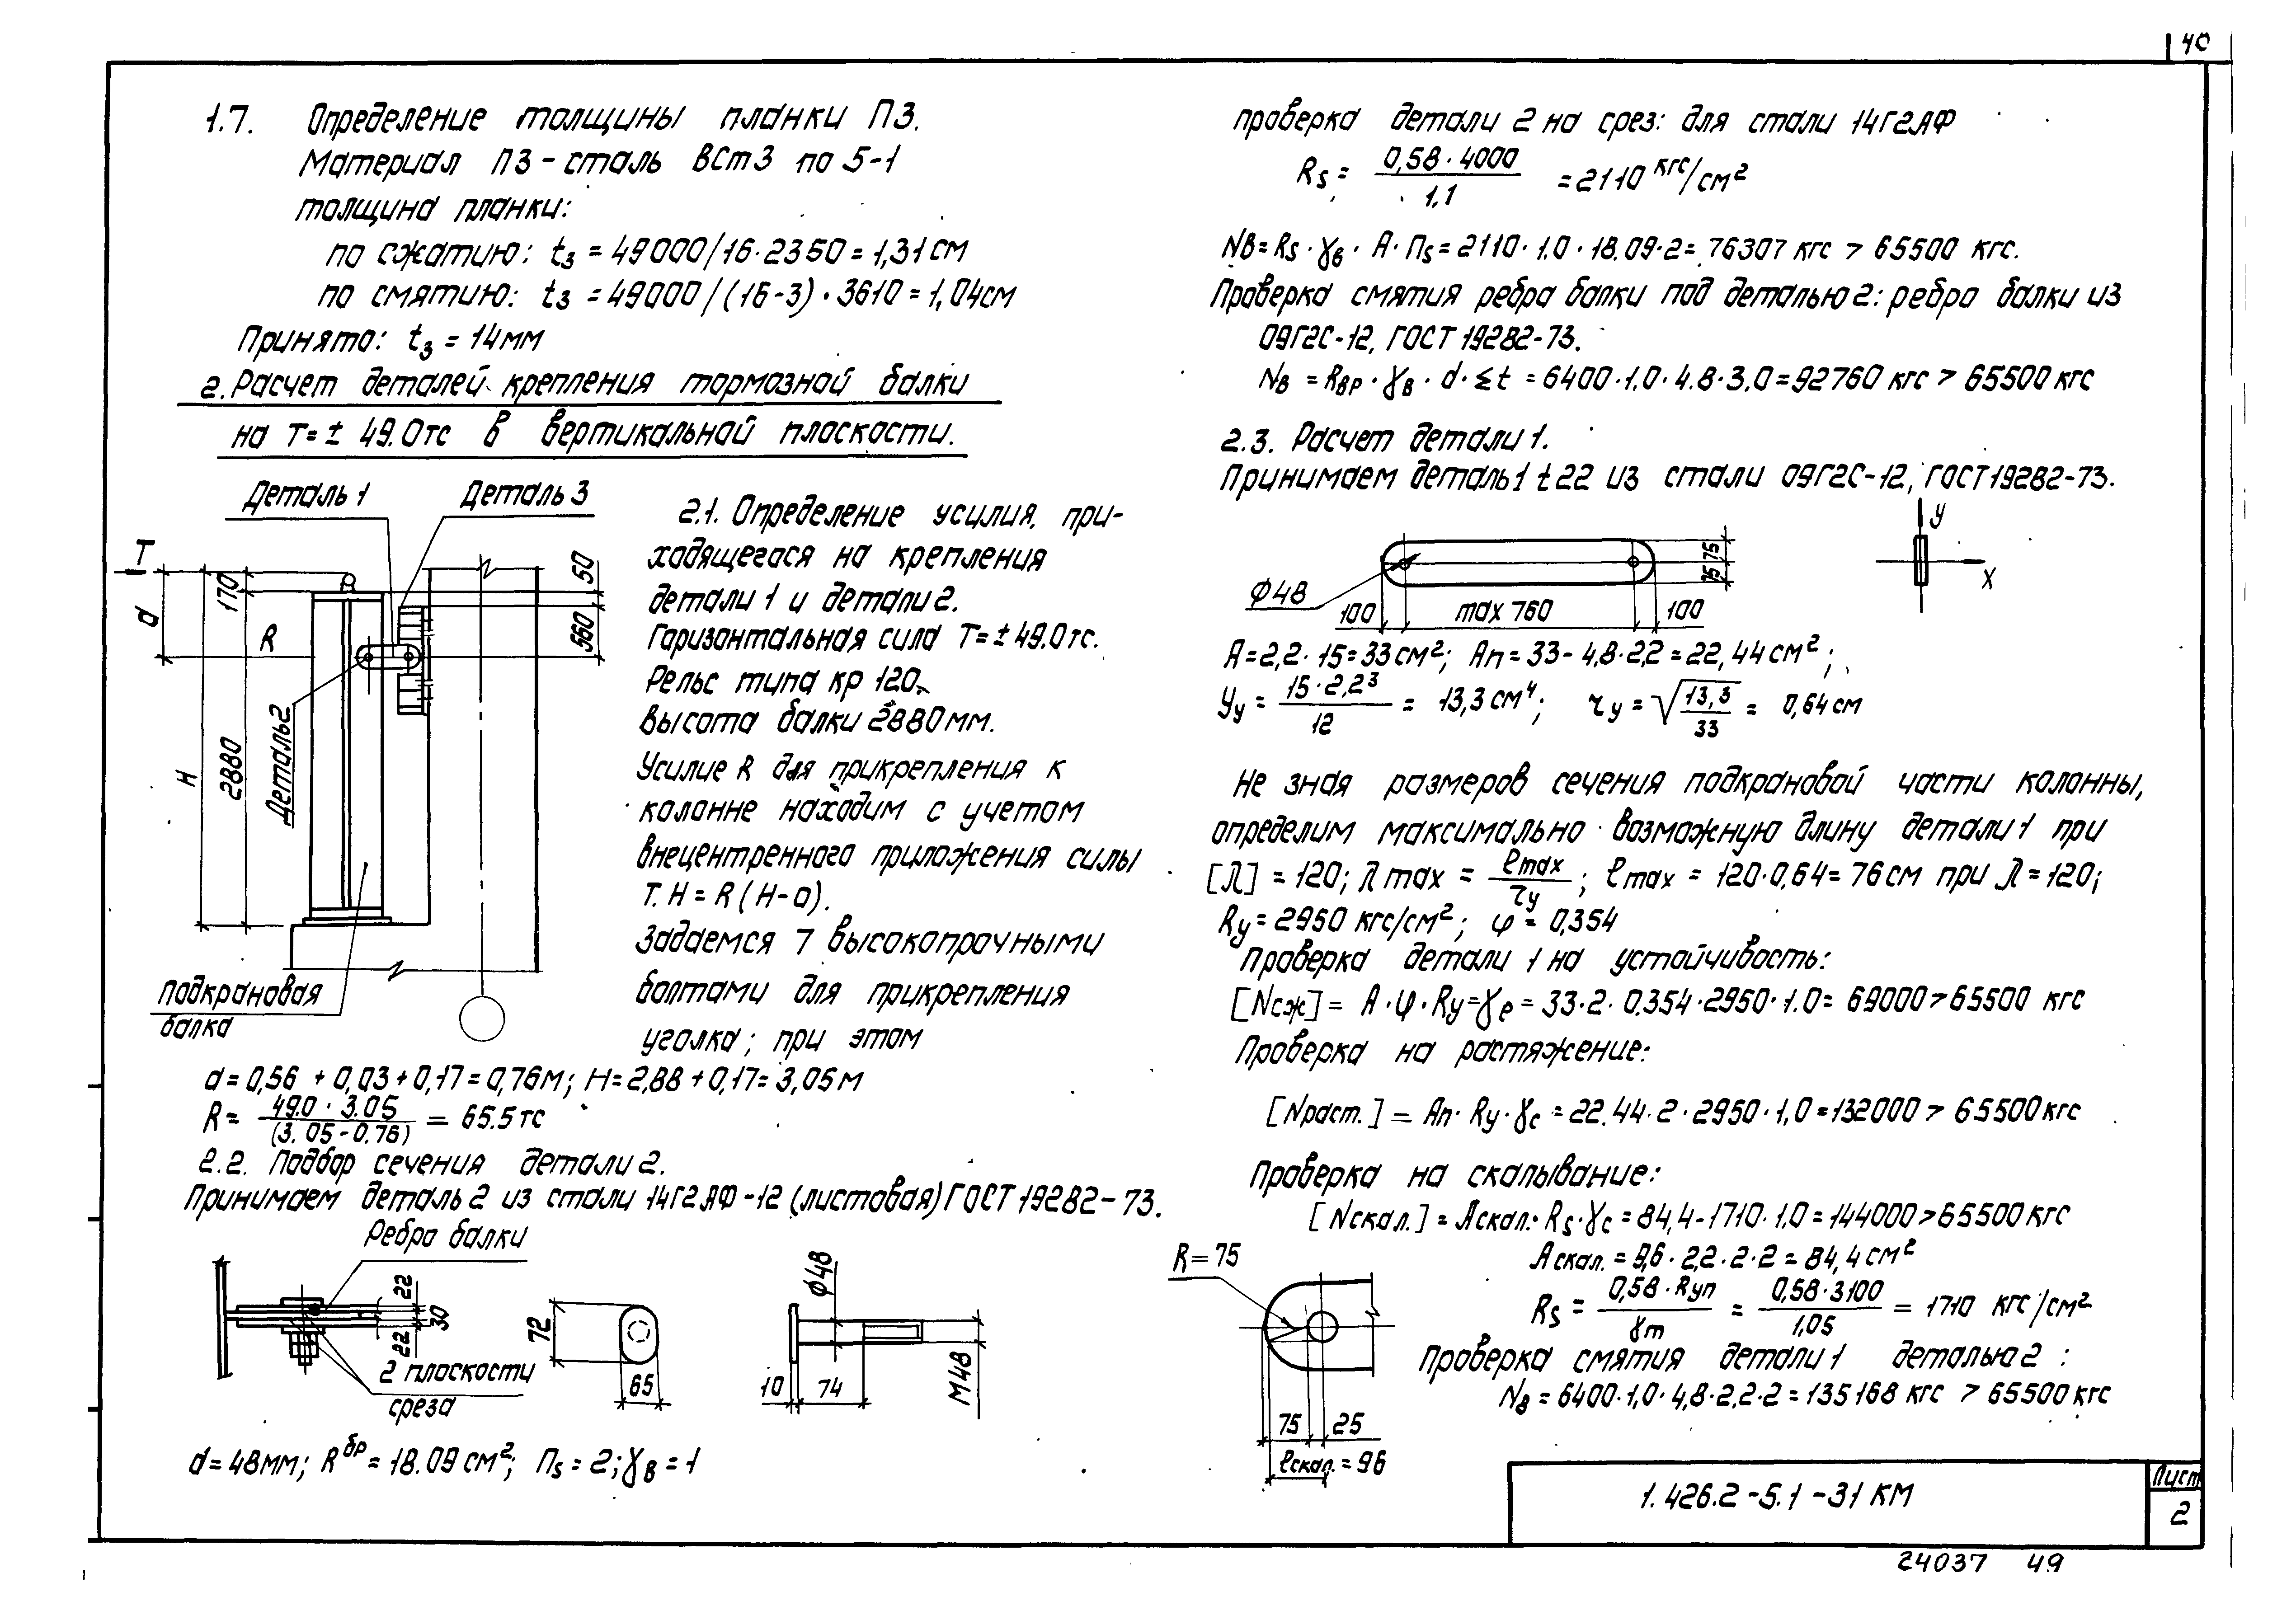 40
1.7. Определение толщины планки П3.
Материал П3 - сталь ВСт3 по 5-1
толщина планки:
по сжатию: t₃ = 49000/16·2350 = 1,31 см
по смятию: t₃ = 49000/(16-3)·3610 = 1,04см
Принято: t₃ = 14мм
2. Расчет деталей крепления тормозной балки
на Т= ± 49.0тс в вертикальной плоскости.
Деталь 1
Деталь 3
Т
d
170
R
50
560
Деталь 2
H
2880
Подкрановая
балка
2.1. Определение усилия, при-
ходящегося на крепления
детали 1 и детали 2.
Горизонтальная сила Т= ± 49.0тс.
Рельс типа кр 120.
Высота балки 2880мм.
Усилие R для прикрепления к
колонне находим с учетом
внецентренного приложения силы
T.H = R(H-a).
Задаемся 7 высокопрочными
болтами для прикрепления
уголка; при этом
d = 0,56 + 0,03 + 0,17 = 0,76м; H = 2,88 + 0,17 = 3,05м
R = 49.0 · 3.05 / (3.05 - 0.76) = 65.5тс
2.2. Подбор сечения детали 2.
Принимаем деталь 2 из стали 14Г2АФ-12 (листовая) ГОСТ 19282-73.
Ребро балки
22
30
22
2 плоскости
среза
72
65
ф48
10
74
М48
d = 48мм; Rᵇᵖ = 18.09 см²; ns = 2; γв = 1
проверка детали 2 на срез: для стали 14Г2АФ
Rs = 0,58 · 4000 / 1,1 = 2110 кгс/см²
Nв = Rs · γв · A · ns = 2110 · 1.0 · 18.09 · 2 = 76307 кгс > 65500 кгс.
Проверка смятия ребра балки под деталью 2: ребро балки из
09Г2С-12, ГОСТ 19282-73.
Nв = Rвр · γв · d · Σt = 6400 · 1,0 · 4.8 · 3,0 = 92760 кгс > 65500 кгс
2.3. Расчет детали 1.
Принимаем деталь 1 t 22 из стали 09Г2С-12, ГОСТ 19282-73.
ф48
100
max 760
100
75
75
У
Х
A = 2,2 · 15 = 33 см²; Ап = 33 - 4,8 · 2,2 = 22,44 см²;
Уу = 15 · 2,2³ / 12 = 13,3 см⁴; ту = √13,3 / 33 = 0,64 см
Не зная размеров сечения подкрановой части колонны,
определим максимально возможную длину детали 1 при
[λ] = 120; λ max = ℓmax / τу; ℓmax = 120·0,64 = 76 см при λ = 120;
Ry = 2950 кгс/см²; φ = 0,354
Проверка детали 1 на устойчивость:
[Nсж] = A · φ · Ry = γe = 33 · 2 · 0.354 · 2950 · 1.0 = 69000 > 65500 кгс
Проверка на растяжение:
[Nраст.] = Ап · Ry · γc = 22.44 · 2 · 2950 · 1,0 = 132000 > 65500 кгс
Проверка на скалывание:
[Nскал.] = Aскал. · Rs · γc = 84,4 - 1710 · 1.0 = 144000 > 65500 кгс
Аскал. = 9,6 · 2,2 · 2 · 2 = 84,4 см²
Rs = 0,58 · Ryп / γm = 0,58 · 3100 / 1,05 = 1710 кгс/см²
Проверка смятия детали 1 деталью 2:
Nв = 6400 · 1,0 · 4,8 · 2,2 · 2 = 135168 кгс > 65500 кгс
R = 75
75
25
ℓскал. = 96
1.426.2 - 5.1 - 31 КМ
Лист
2
24037 49